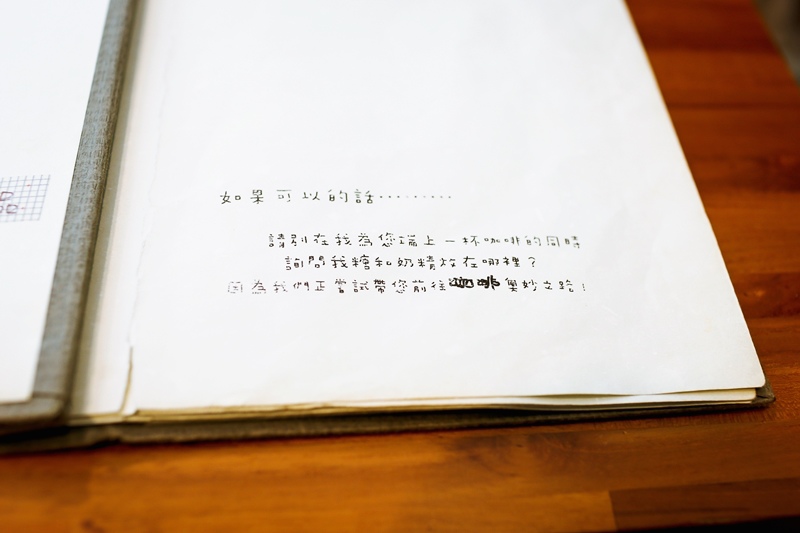 如果可以的話.........
請別在我為您端上一杯咖啡的同時
詢問我糖和奶精放在哪裡?
因為我們正嘗試帶您前往咖啡奧妙之路!